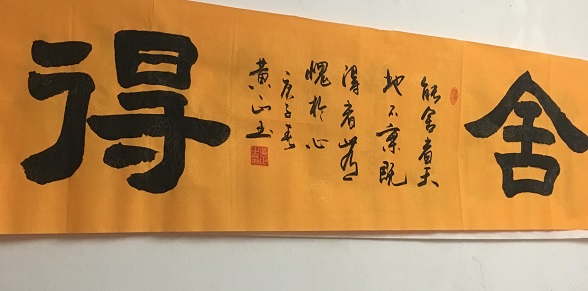 舍
能舍者天
地不棄既
得者無
愧於心
庚子春
黄山玉
得